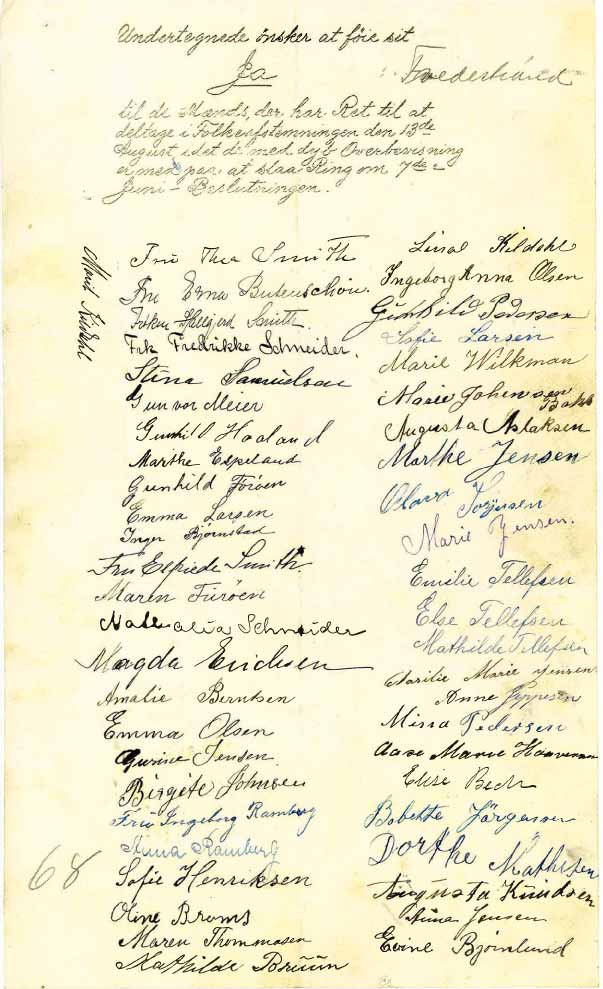 Undertegnede ønsker at føie sit
Ja
Tvedestrand
til de Mænds, der har Ret til at
deltage i Folkeafstemningen den 13de
August idet de med dyb Overbevisning
er med paa at slaa Ring om 7de
Juni-Beslutningen.
Marit Kildahl
Fru Thea Smith
Fru Erna Butenschøn.
Frøken Smith.
Frk Fredrikke Schneider.
Stina Samuelsen
Gunvor Meier
Gunhild Haaland
Marthe Espeland
Gunhild Førøen
Emma Larsen
Inger Bjørnstad
Fru Elfriede Smith.
Maren Fürøen
Nathalia Schneider
Magda Ericksen
Amalie Berntsen
Emma Olsen
Gurine Jensen.
Birgete Johnsen
Fru Ingeborg Ramberg
Anna Ramberg
Sofie Henriksen
Oline Broms
Maren Thommasen
Mathilde Bruun
68
Kildahl
Ingeborg Anna Olsen
Gunhild Pederson
Sofie Larsen
Marie Wilkman
Marie Johensen
Augusta Aslaksen
Marthe Jensen
Olava Torjusen
Marie Jensen.
Emilie Tellefsen
Else Tellefsen
Mathilde Tellefsen
Marie Jensen
Anne Jeppesen
Minna Pedersen
Aase Marie
Elise Bech
Bobette Jörgensen
Dorthe Mathisen
Augusta Knudsen
Anna Jensen
Evine Bjørnlund